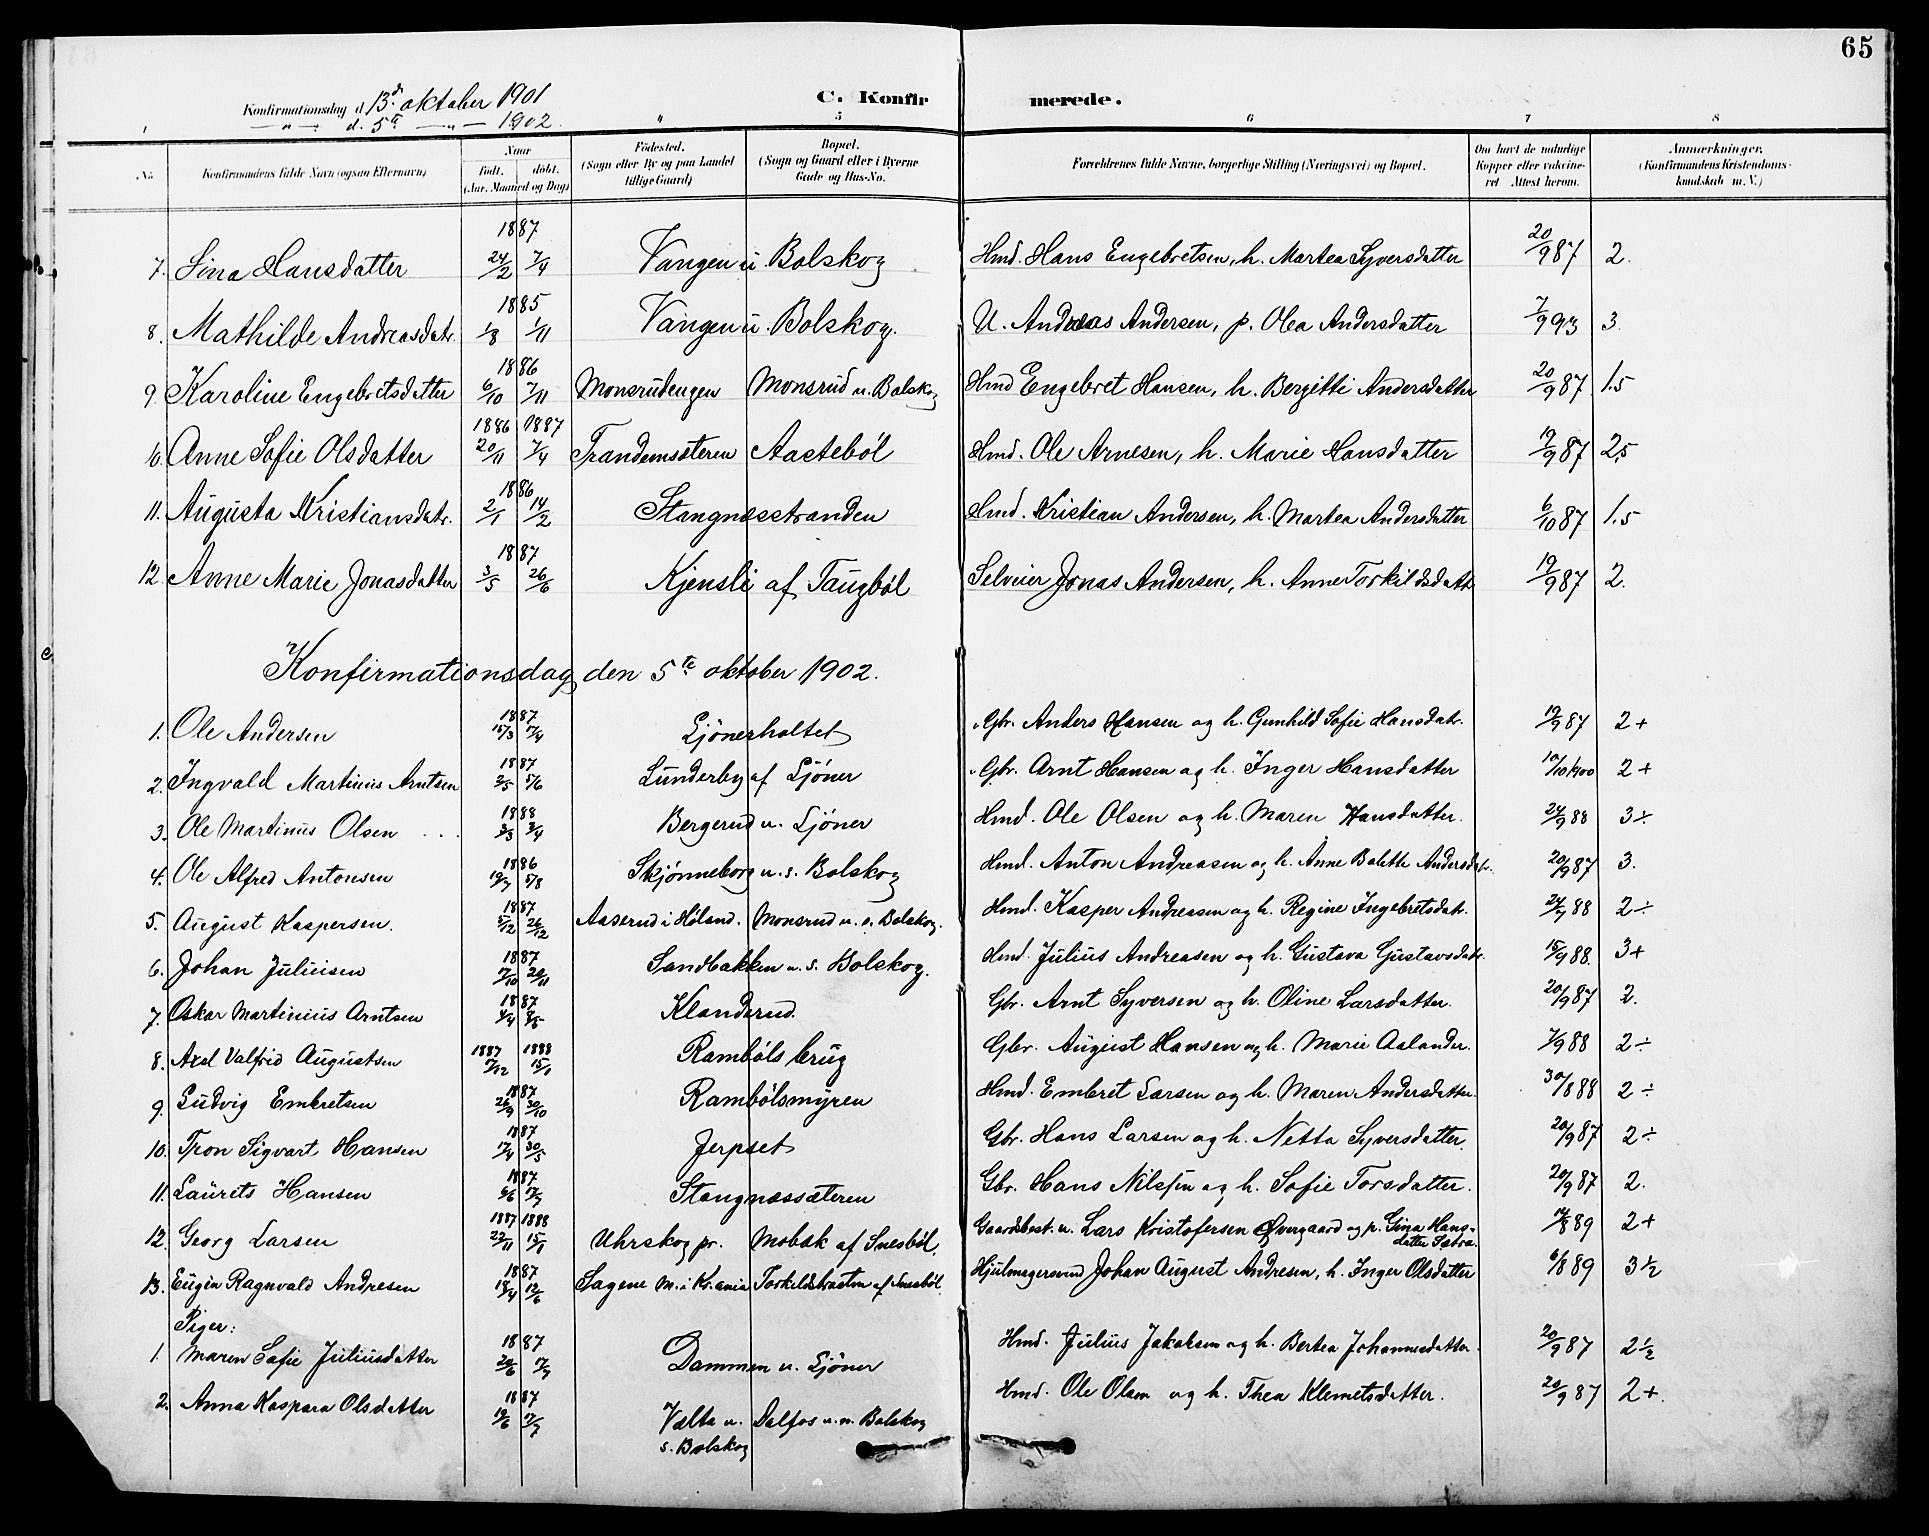 65
Konfirmationsdag d 13de oktober 1901
— „ — d. 5te — „ — 1902.
C. Konfirmerede.
1 4 5 6 7 8
No. Konfirmandens fulde Navn (ogsaa Efternavn) Naar født. døbt. (Aar, Maaned og Dag) Fødested. (Sogn eller By og paa Landet tillige Gaard) Bopæl. (Sogn og Gaard eller i Byerne Gade og Hus-No. Forældrenes fulde Navne, borgerlige Stilling (Næringsvei) og Bopæl. Om havt de naturlige Kopper eller vakcineret Attest herom. Anmerkninger. (Konfirmandens Kristendomskundskab m. V.)
1887
7. Lina Hansdatter 24/2 7/4 Vangen u. Bolskog Hmd. Hans Engebretsen, h. Martea Syversdatter 20/9 87 2.
1885
8. Mathilde Andreasdatr. 1/8 1/11 Vangen u. Bolskog. U. Andreas Andersen, p. Olea Andersdatter 7/9 93 3.
1886
9. Karoline Engebretsdatter 6/10 7/11 Monsrudengen Monsrud u. Bolskog Hmd Engebret Hansen, h. Bergitte Andersdatter 20/9 87 1.5
1886 1887
10. Anne Sofie Olsdatter 20/11 7/4 Trandemsæteren Aastebøl Hmd. Ole Arnesen, h. Marie Hansdatter 19/9 87 2,5
1886
11. Augusta Kristiansdatr. 2/1 14/2 Stangnæsstranden Hmd. Kristian Andersen, h. Martea Andersdatter 6/10 87 1.5
1887
12 Anne Marie Jonasdatter 3/5 26/6 Kjensli af Taugbøl Selveier Jonas Andersen, h. Anne Torkildsdatr 19/9 87 2.
Konfirmationsdag den 5te oktober 1902.
1887
1. Ole Andersen 15/3 17/4 Ljønerholtet Gbr. Anders Hansen og h. Gunhild Sofie Hansdatr. 19/9 87 2+
1887
2. Ingvald Martinius Arntsen 2/5 5/6 Lunderby af Ljöner Gbr. Arnt Hansen og h. Inger Hansdatter 10/10 1900 2+
1888
3. Ole Martinus Olsen 3/3 2/4 Bergerud u. Ljöner Hmd. Ole Olsen og h. Maren Hansdatter. 24/9 88 3÷
1886
4. Ole Alfred Antonsen 19/7 5/8 Skjønneborg u. s. Bolskog Hmd. Anton Andreasen og h. Anne Bolette Andersdatr. 20/9 87 3.
1887
5. August Kaspersen. 5/12 26/12 Aaserud i Høland. Monsrud u. s. Bolskog. Hmd. Kasper Andreasen og h. Regine Ingebretsdatr. 24/9 88 2÷
1887
6. Johan Juliusen 17/10 20/11 Sandbakken u. s. Bolskog. Hmd. Julius Andreasen og h. Gustava Gustavsdatr. 15/9 88. 3+
1887
7. Oskar Martinius Arntsen 4/4 8/5 Klanderud. Gbr. Arnt Syversen og h. Oline Larsdatter. 20/9 87 2.
1887 1888
8. Axel Valfrid Augustsen 17/12 15/1 Rambøls brug Gbr. August Hansen og h. Marie Aalander. 7/9 88 2÷
1887
9. Ludvig Embretsen 26/9 30/10 Rambølsmyren Hmd. Embret Larsen og h. Maren Andersdatter. 30/8 88 2÷
1887
10. Tron Sigvart Hansen 17/4 30/5 Jerpset Gbr. Hans Larsen og h. Netta Syversdatter. 20/9 87 2÷
1887
11. Laurits Hansen 6/6 17/7 Stangnæssæteren Gbr. Hans Nilsen og h. Sofie Torsdatter. 20/9 87 2.
1887 1888
12. Georg Larsen 22/11 15/1 Uhrskog pr. Mobæk af Snesbøl. Gaardsbest. u. Lars Kristofersen Øvergaard og p. Gina Hans-
datter Sætra. 14/8 89 2+
1887
13. Eugen Ragnvald Andresen 18/4 12/6 Sagene M. i Kr.ania Torkildsbraaten af Snesbøl. Hjulmagersvend Johan August Andresen, h. Inger Olsdatter 6/8 89 3½
Piger:
1887
1. Maren Sofie Juliusdatter 20/6 17/7 Dammen u. Ljöner Hmd. Julius Jakobsen og h. Bertea Johannesdatter. 20/9 87 2½
1887
2. Anna Kaspara Olsdatter 19/6 17/7 Vælta u. s. Bolskog Dalfos u. n. Bolskog Hmd. Ole Olsen og h. Thea Klemetsdatter. 20/9 87 2+.